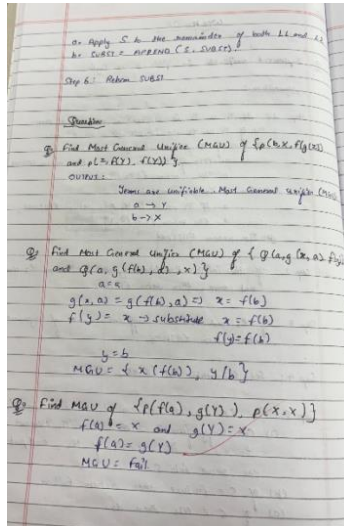 a. Apply S to the remainder of both L1 and L2
b. SUBST = APPEND (S, SUBST).
Step 6: Return SUBST
Question
Q) Find Most General Unifier (MGU) of {p(b,X,f(g(Z)))
and p(Z,f(Y),f(Y))}
OUTPUT:
Terms are unifiable. Most General Unifier (MGU)
a → Y
b → X
Q) Find Most General Unifier (MGU) of { Q(a,g(x,a),f(y))
and Q(a,g(f(b),a),x)}
a=a
g(x,a) = g(f(b),a) => x = f(b)
f(y) = x → substitute x = f(b)
f(y) = f(b)
y = b
MGU = { x (f(b)), y/b }
Q: Find MGU of {p(f(a), g(Y)), p(X,X)}
f(a) = x and g(Y) = x
f(a) = g(Y)
MGU = fail